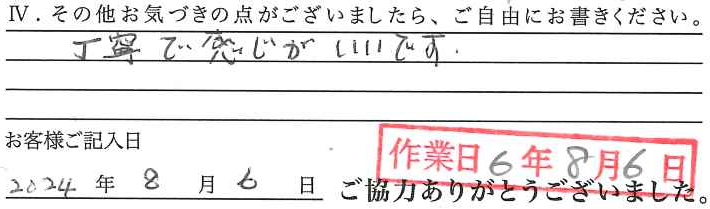 Ⅳ．その他お気づきの点がございましたら、ご自由にお書きください。
丁寧で感じがいいです.
お客様ご記入日
作業日6年8月6日
2024年8月6日
ご協力ありがとうございました。